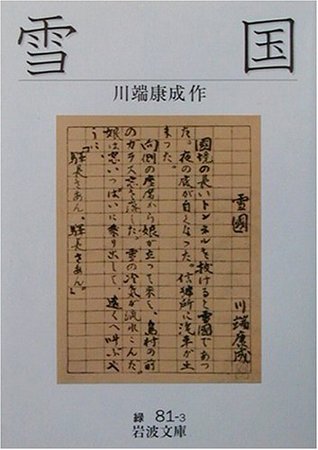 雪国
川端康成作
雪國
川端康成
國境の長いトンネルを抜けると雪國であつ
た。夜の底が白くなつた。信號所に汽車が止
まつた。
向側の座席から娘が立つて来て、島村の前
のガラス窓を落した。雪の冷気が流れこんだ。
娘は窓いつぱいに乗り出して、遠くへ呼ぶや
うに、
「駅長さあん、駅長さあん。」
緑 81-3
岩波文庫